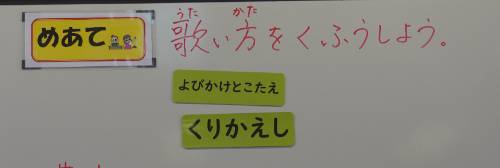 めあて
うた かた
歌い方をくふうしよう。
よびかけとこたえ
くりかえし